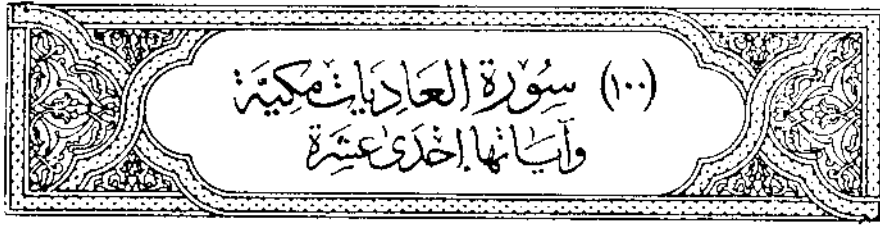 (١٠٠) سُورَة العَادِيَات مَكيَّة
وَآيَاتهَا إِحْدَىٰ عَشِرَة